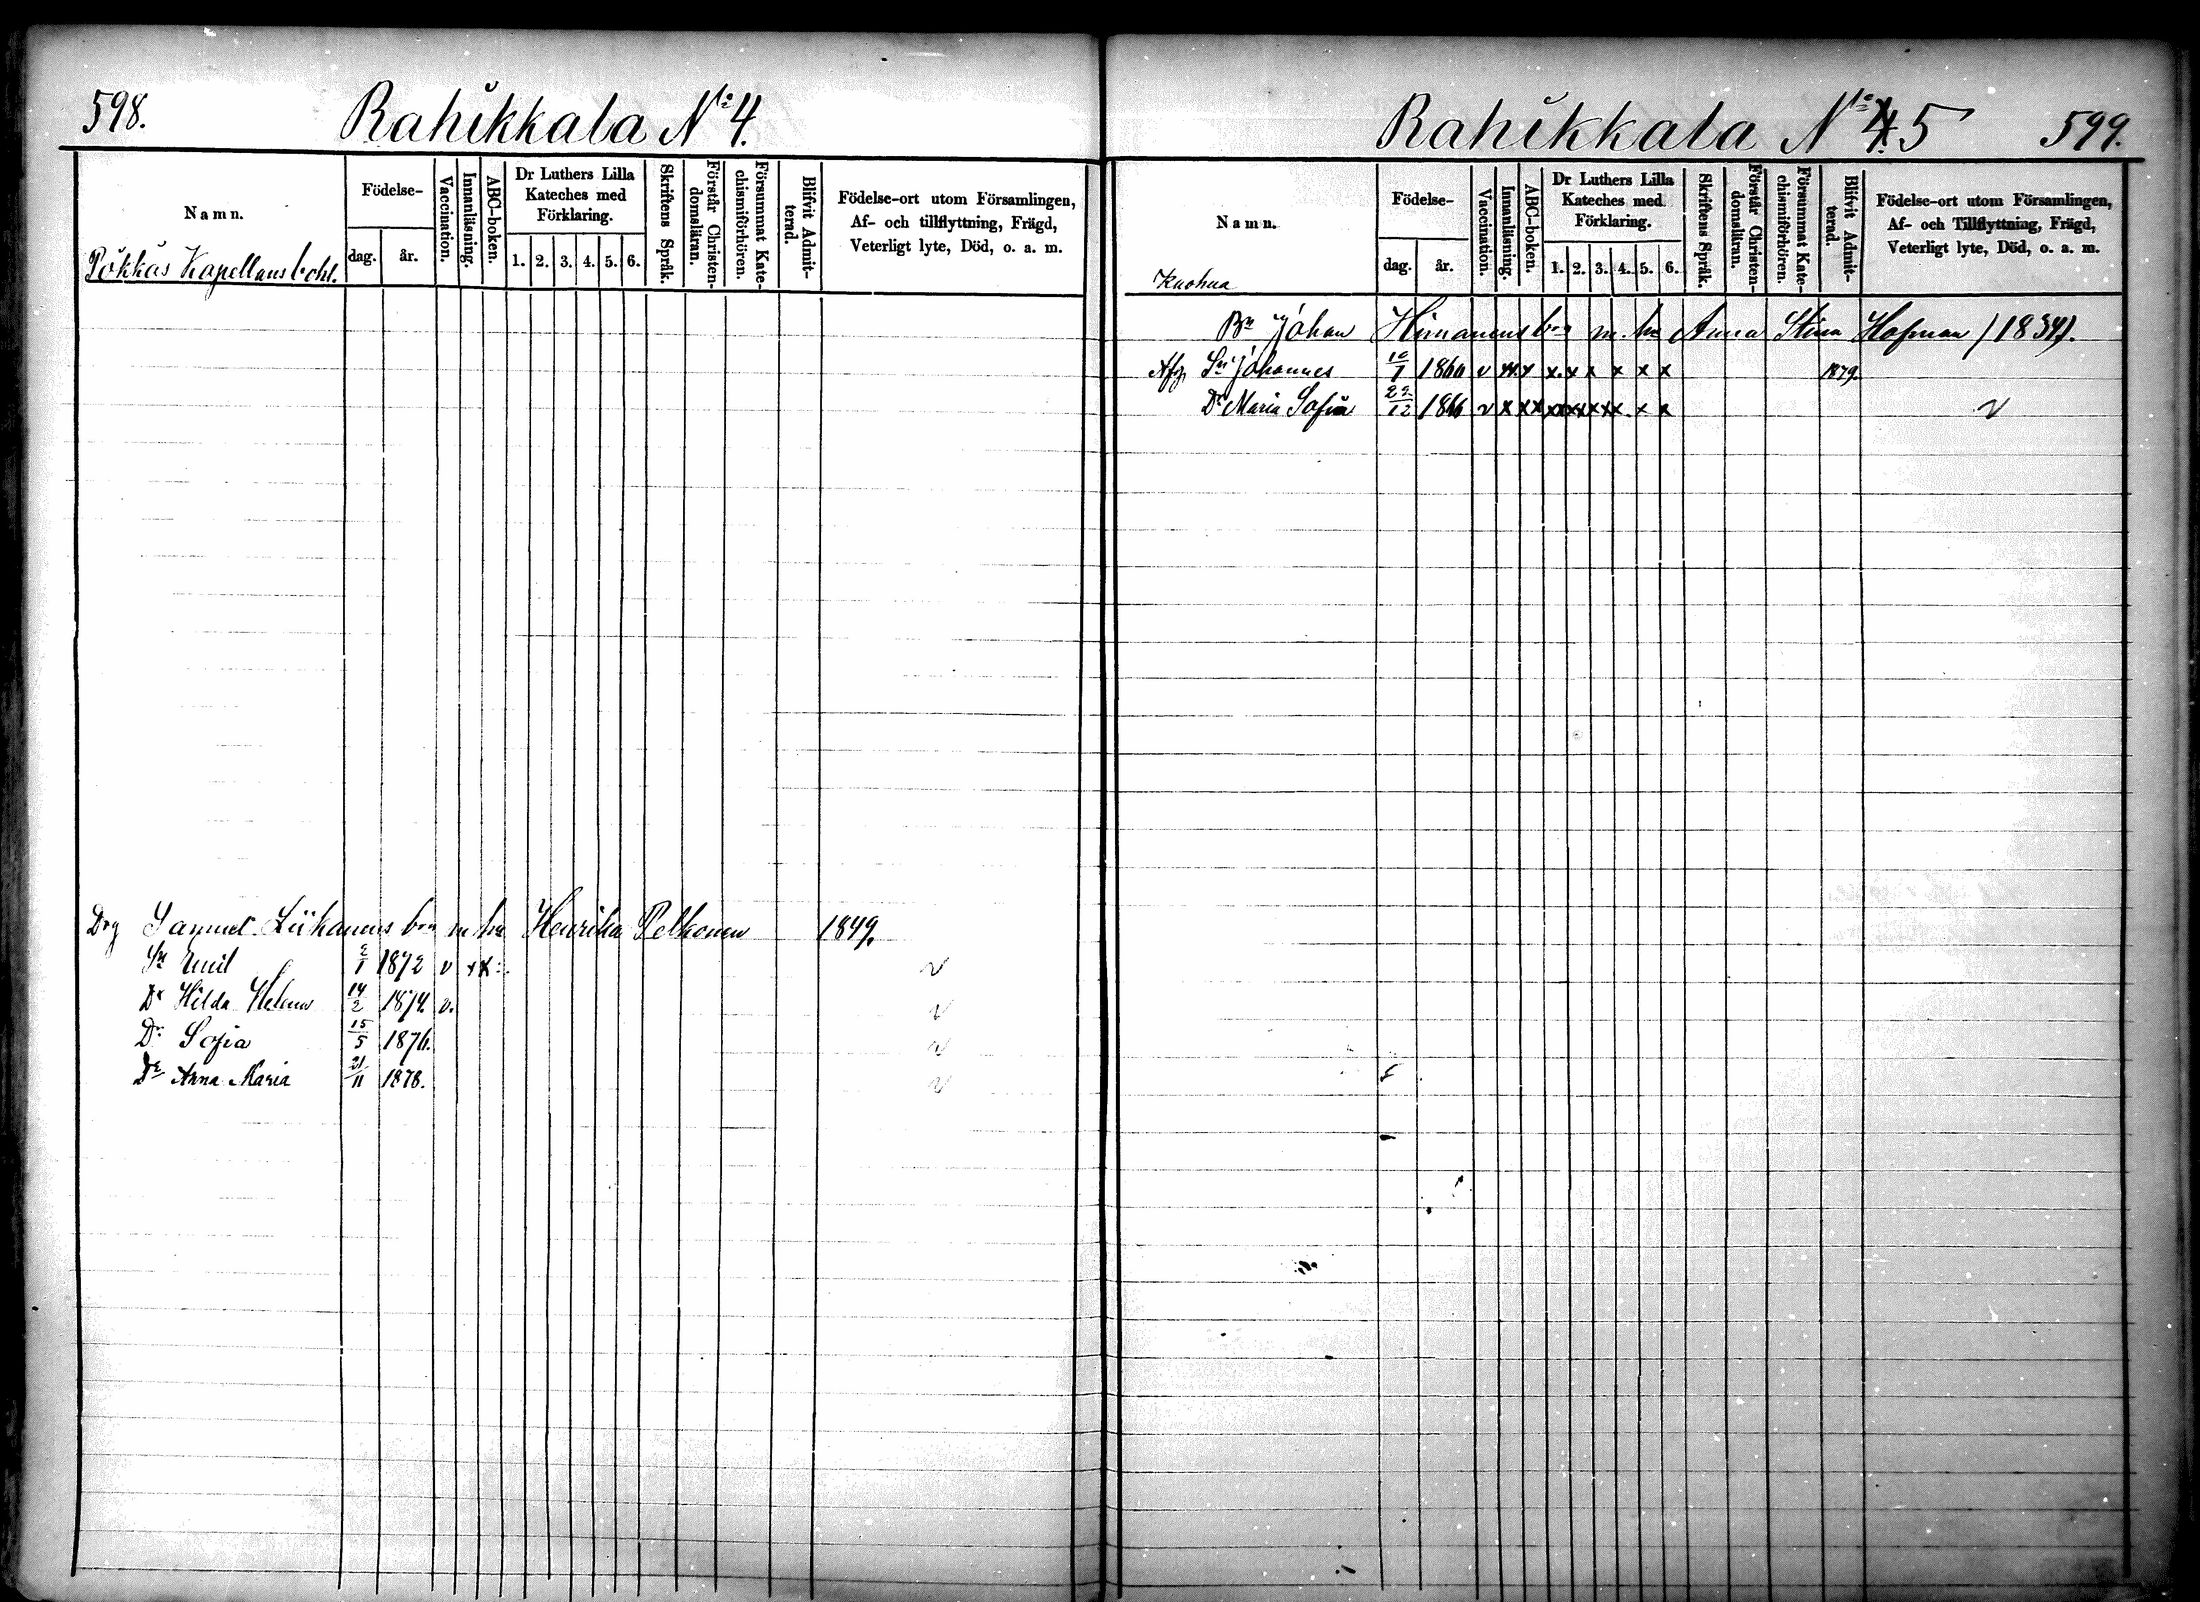 598.
Rahikkala No 4.
Namn.
Födelse-
dag.
år.
Vaccination.
Innanläsning.
ABC-boken.
Dr Luthers Lilla
Kateches med
Förklaring.
1. 2. 3. 4. 5. 6.
Skriftens Språk.
Förstår Christen-
domsläran.
Försummat Kate-
chismiförhören.
Blifvit Admit-
terad.
Födelse-ort utom Församlingen,
Af- och tillflyttning, Frägd,
Veterligt lyte, Död, o. a. m.
Pökkäs Kapellansbohl.
Drg Samuel barn m. hu Henrika Pelkonen 1849.
Sn Emil 2/1 1872 v x x
Dr Hilda Helena 14/2 1874. v. v
Dr Sofia 15/5 1876. v
Dr Anna Maria 21/11 1878. v
Rahikkala No 4. 5
599.
Namn.
Födelse-
dag.
år.
Vaccination.
Innanläsning.
ABC-boken.
Dr Luthers Lilla
Kateches med
Förklaring.
1. 2. 3. 4. 5. 6.
Skriftens Språk.
Förstår Christen-
domsläran.
Försummat Kate-
chismiförhören.
Blifvit Admit-
terad.
Födelse-ort utom Församlingen,
Af- och Tillflyttning, Frägd,
Veterligt lyte, Död, o. a. m.
Kuohua
Bn Johan Himanens barn m. hu Anna Stina Hofman (1834).
Sn Johannes 1860 v x x x x x x x 1879.
Dr Maria Sofia 22/12 1866 v x x x x x x x x x v